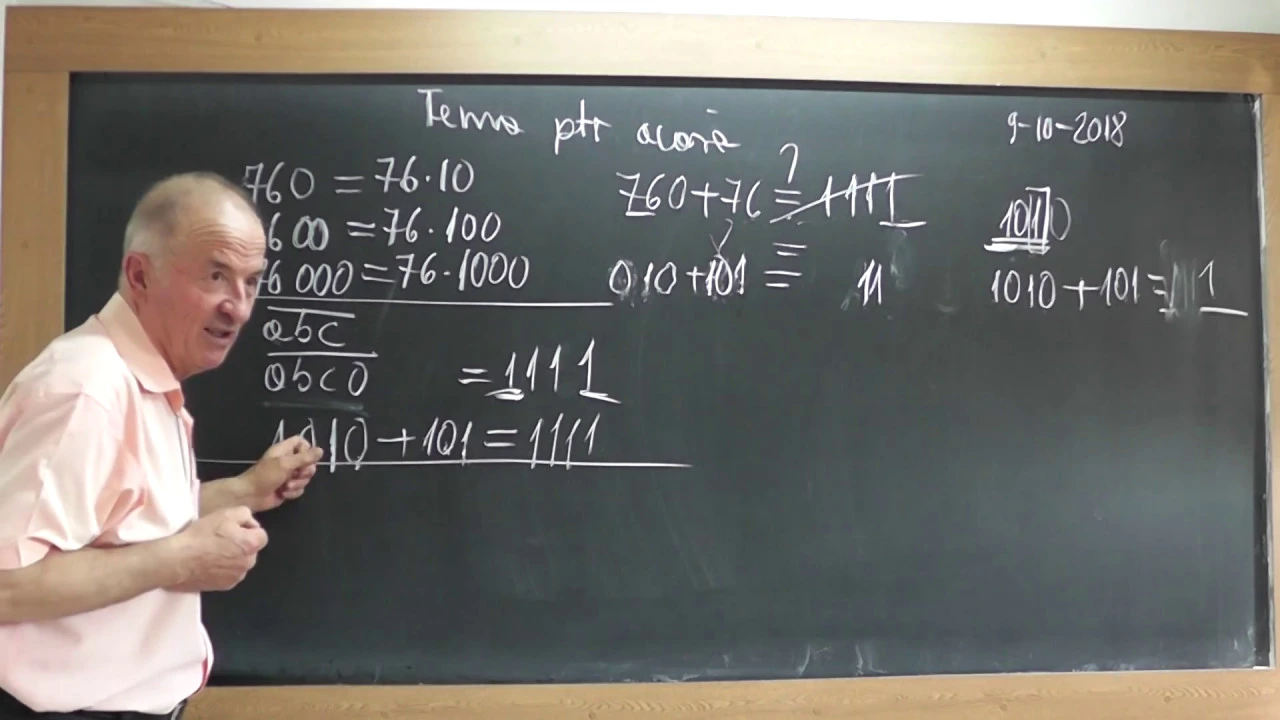 Tema ptr acasă
9-10-2018
760 = 76·10
600 = 76·100
76000 = 76·1000
abc
abc0
= 1111
1010 + 101 = 1111
760 + 76 = 1111
?
010 + 101 = 11
10110
1010 + 101 = 1111